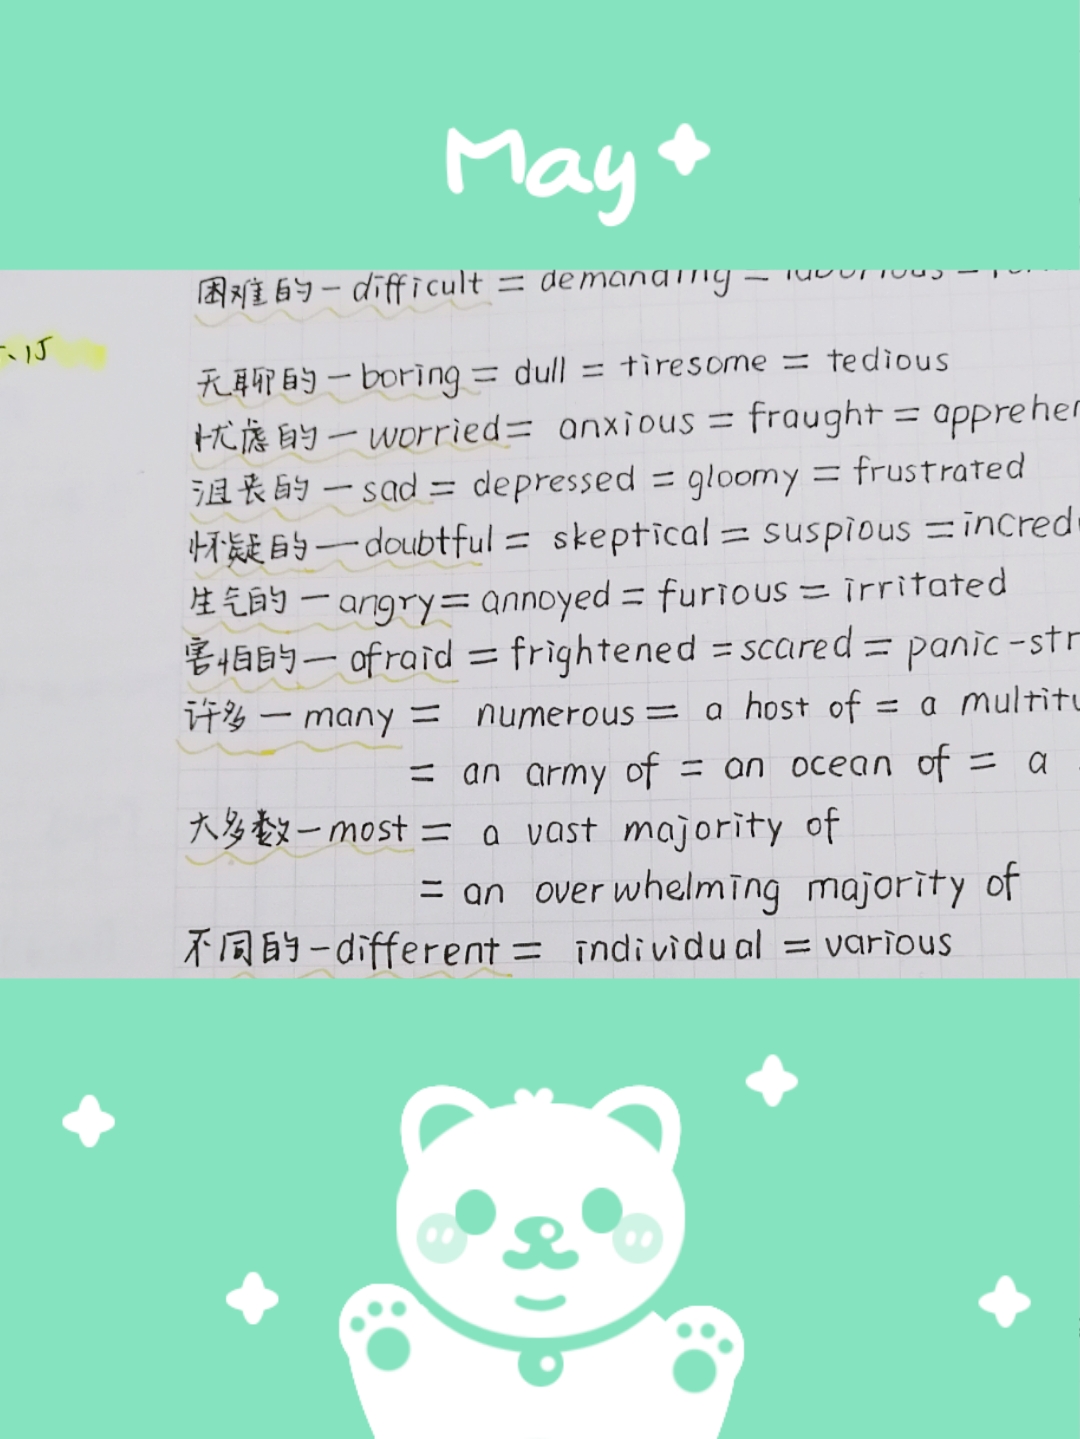 May
困难的 - difficult = demanding =
无聊的 - boring = dull = tiresome = tedious
忧虑的 - worried = anxious = fraught = apprehen
沮丧的 - sad = depressed = gloomy = frustrated
怀疑的 — doubtful = skeptical = suspious = incred
生气的 - angry = annoyed = furious = irritated
害怕的 - afraid = frightened = scared = panic-str
许多 - many = numerous = a host of = a multitu
= an army of = an ocean of = a
大多数 - most = a vast majority of
= an overwhelming majority of
不同的 - different = individual = various